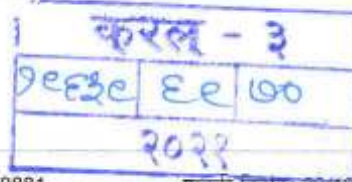 करल - ३
१९६३९ ६९ ७०
२०२१